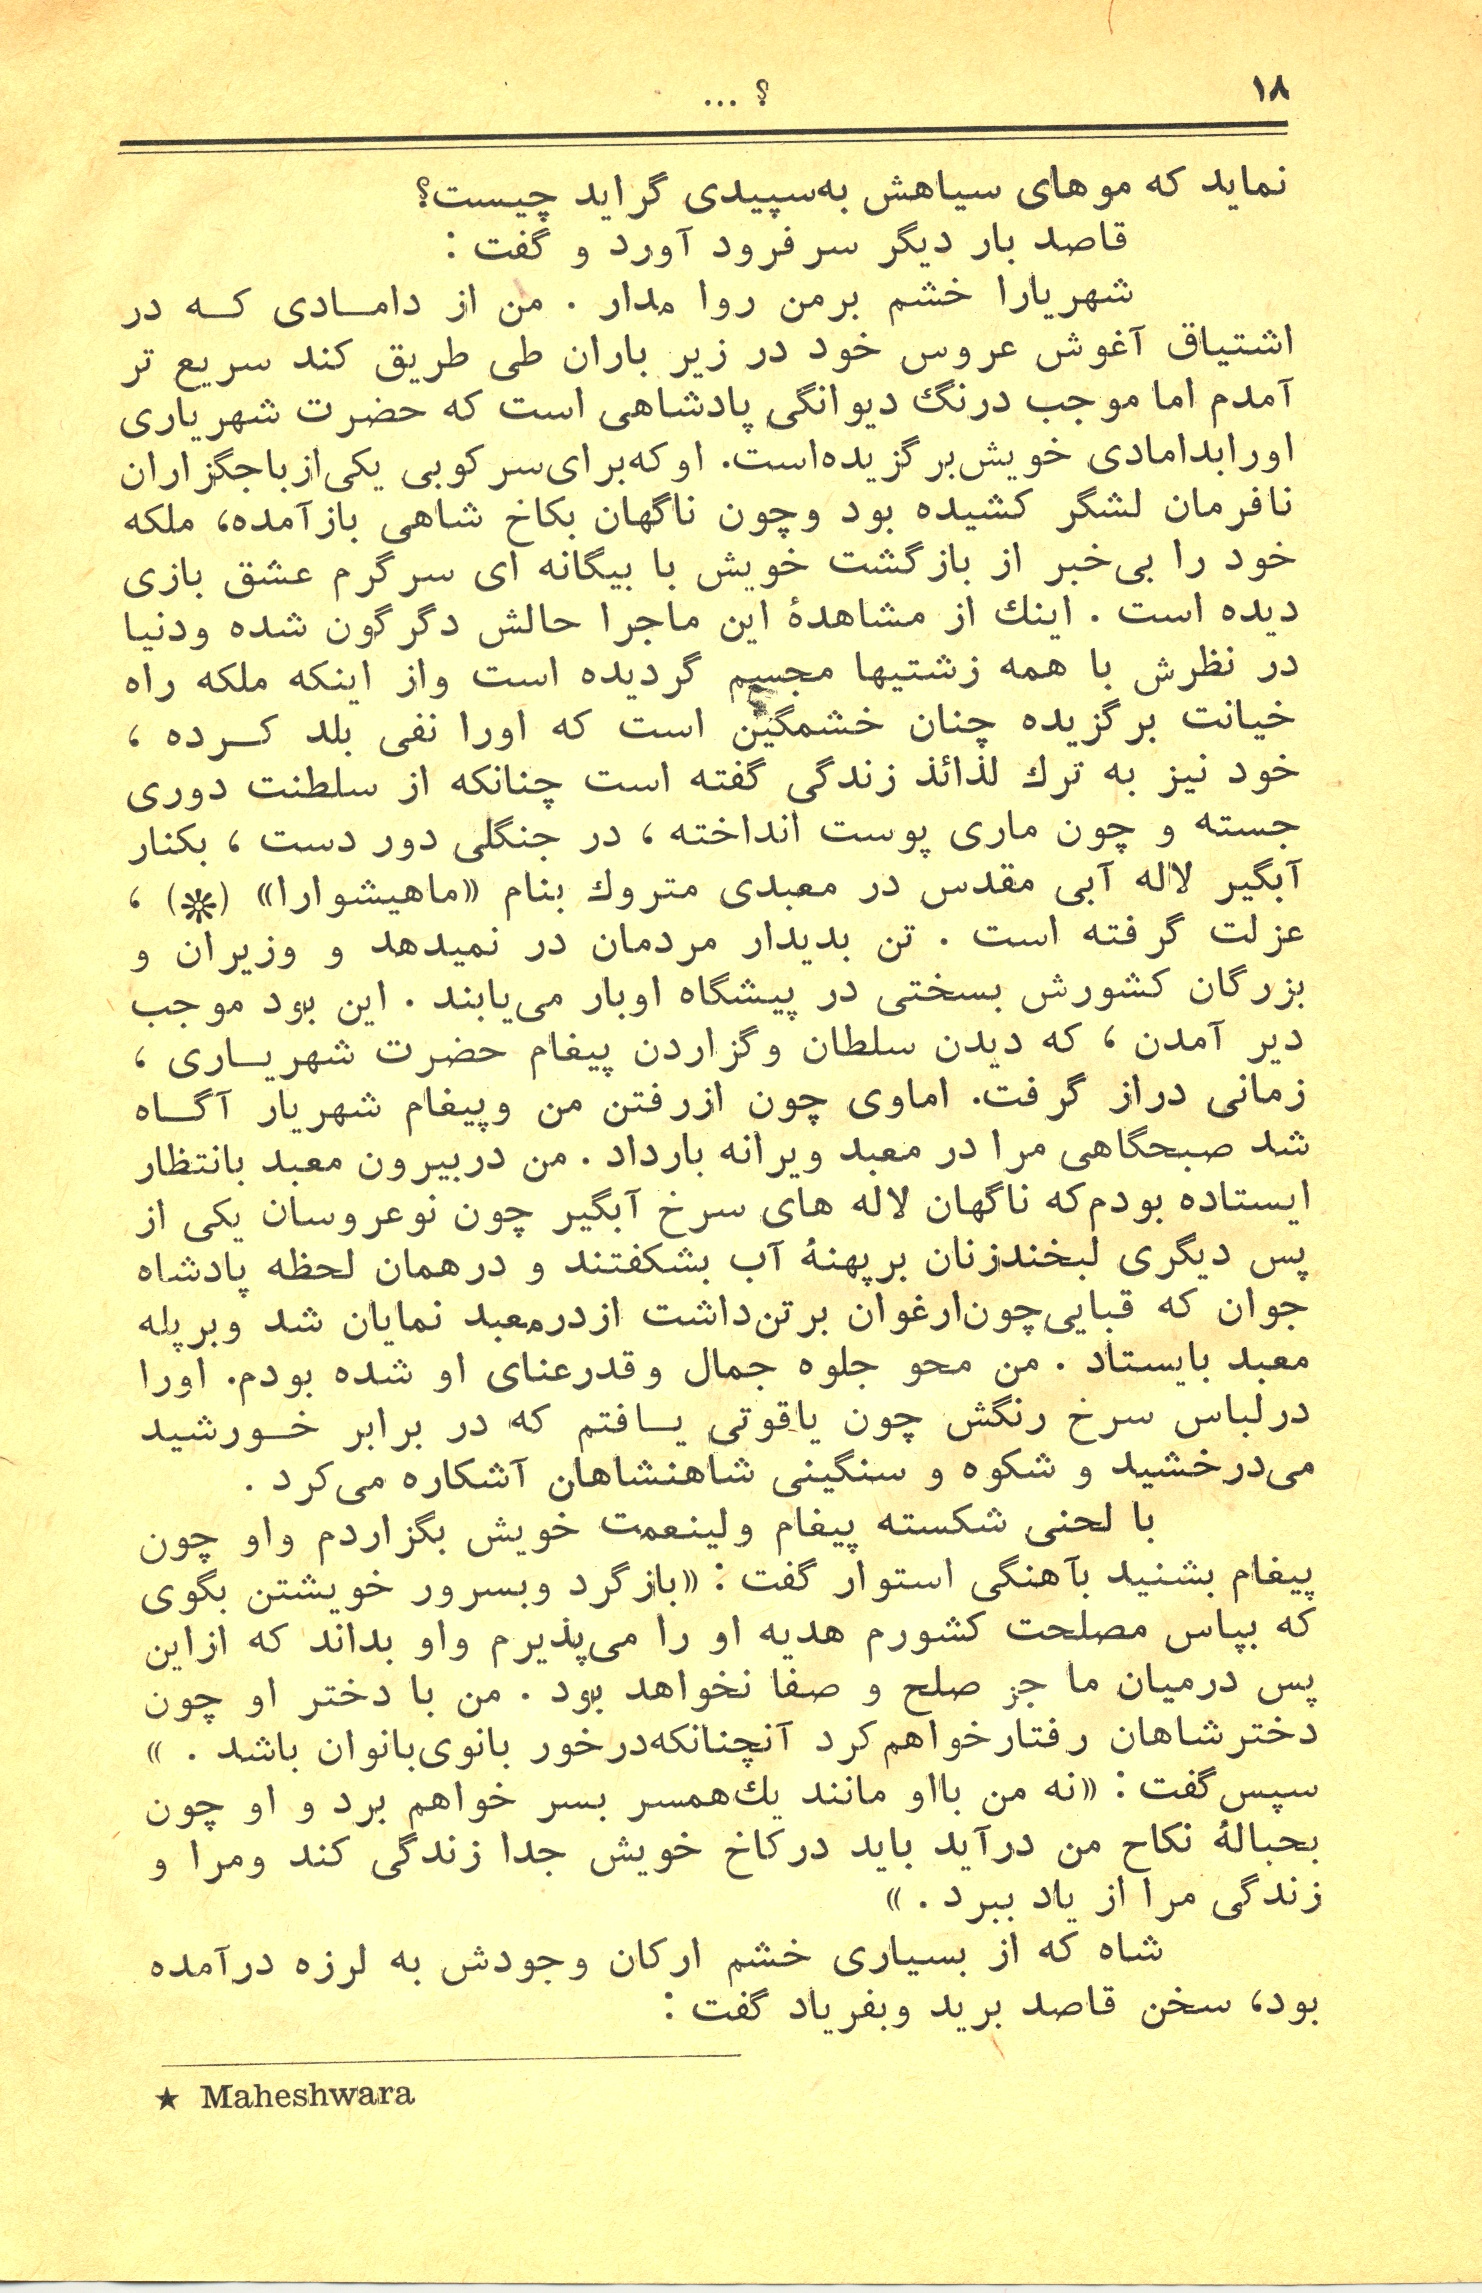 ۱۸
؟ ...
نماید که موهای سیاهش به‌سپیدی گراید چیست؟
قاصد بار دیگر سر فرود آورد و گفت :
شهریارا خشم برمن روا مدار . من از دامادی که در
اشتیاق آغوش عروس خود در زیر باران طی طریق کند سریع تر
آمدم اما موجب درنگ دیوانگی پادشاهی است که حضرت شهریاری
اورابدامادی خویش‌برگزیده‌است. اوکه‌برای‌سرکوبی یکی‌ازباجگزاران
نافرمان لشگر کشیده بود وچون ناگهان بکاخ شاهی بازآمده، ملکه
خود را بی‌خبر از بازگشت خویش با بیگانه ای سرگرم عشق بازی
دیده است . اینك از مشاهدۀ این ماجرا حالش دگرگون شده ودنیا
در نظرش با همه زشتیها مجسم گردیده است واز اینکه ملکه راه
خیانت برگزیده چنان خشمگین است که اورا نفی بلد کرده ،
خود نیز به ترك لذائذ زندگی گفته است چنانکه از سلطنت دوری
جسته و چون ماری پوست انداخته ، در جنگلی دور دست ، بکنار
آبگیر لاله آبی مقدس در معبدی متروك بنام «ماهیشوارا» (✲) ،
عزلت گرفته است . تن بدیدار مردمان در نمیدهد و وزیران و
بزرگان کشورش بسختی در پیشگاه اوبار می‌یابند . این بود موجب
دیر آمدن ، که دیدن سلطان وگزاردن پیغام حضرت شهریاری ،
زمانی دراز گرفت. اماوی چون ازرفتن من وپیغام شهریار آگاه
شد صبحگاهی مرا در معبد ویرانه بارداد . من دربیرون معبد بانتظار
ایستاده بودم‌که ناگهان لاله های سرخ آبگیر چون نوعروسان یکی از
پس دیگری لبخندزنان برپهنۀ آب بشکفتند و درهمان لحظه پادشاه
جوان که قبایی‌چون‌ارغوان برتن‌داشت ازدرمعبد نمایان شد وبرپله
معبد بایستاد . من محو جلوه جمال وقدرعنای او شده بودم. اورا
درلباس سرخ رنگش چون یاقوتی یافتم که در برابر خورشید
می‌درخشید و شکوه و سنگینی شاهنشاهان آشکاره می‌کرد .
با لحنی شکسته پیغام ولینعمت خویش بگزاردم واو چون
پیغام بشنید بآهنگی استوار گفت : «بازگرد وبسرور خویشتن بگوی
که بپاس مصلحت کشورم هدیه او را می‌پذیرم واو بداند که ازاین
پس درمیان ما جز صلح و صفا نخواهد بود . من با دختر او چون
دخترشاهان رفتارخواهم‌کرد آنچنانکه‌درخور بانوی‌بانوان باشد . »
سپس‌گفت : «نه من بااو مانند یك‌همسر بسر خواهم برد و او چون
بحبالۀ نکاح من درآید باید درکاخ خویش جدا زندگی کند ومرا و
زندگی مرا از یاد ببرد . »
شاه که از بسیاری خشم ارکان وجودش به لرزه درآمده
بود، سخن قاصد برید وبفریاد گفت :
★ Maheshwara